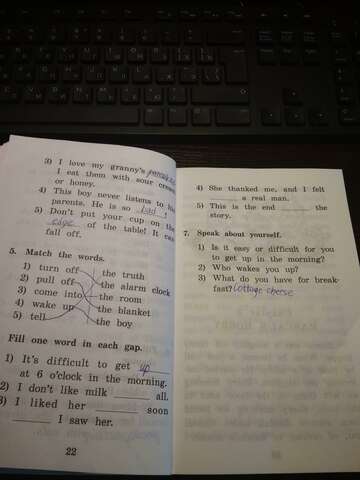 3) I love my granny's
I eat them with sour cream
or honey.
4) This boy never listens to his
parents. He is so bad.
5) Don't put your cup on the
edge of the table! It can
fall off.
5. Match the words.
1) turn off the truth
2) pull off the alarm clock
3) come into the room
4) wake up the blanket
5) tell the boy
Fill one word in each gap.
1) It's difficult to get up
at 6 o'clock in the morning.
2) I don't like milk ______ all.
3) I liked her ______ soon
______ I saw her.
22
4) She thanked me, and I felt
a real man.
5) This is the end ______ the
story.
7. Speak about yourself.
1) Is it easy or difficult for you
to get up in the morning?
2) Who wakes you up?
3) What do you have for break-
fast? Cottage cheese